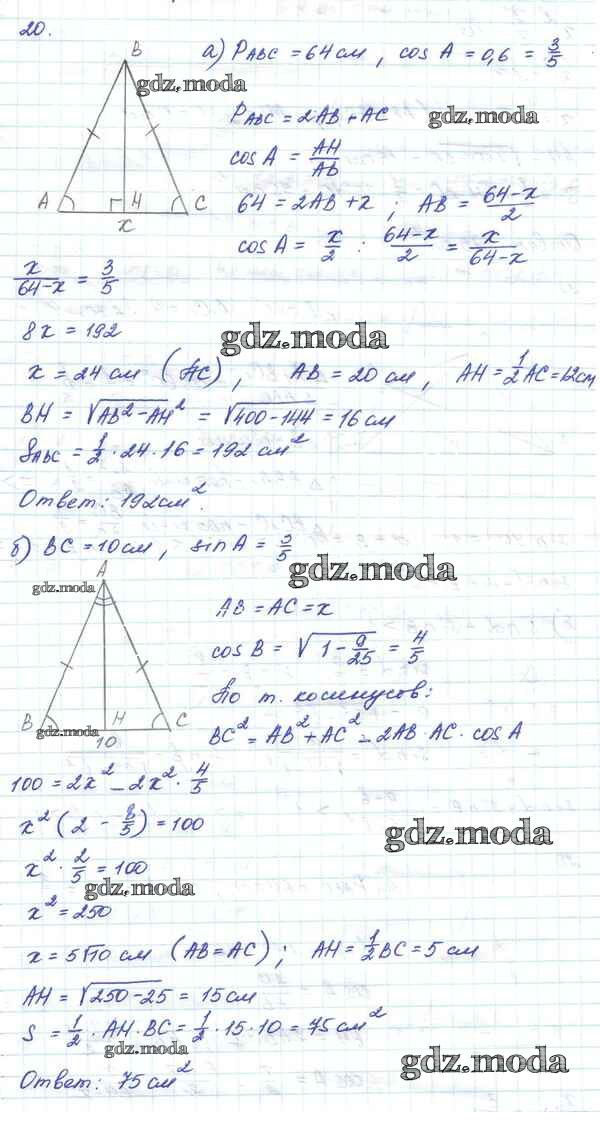 20.
а) P_ABC = 64 см , cos A = 0,6 = 3/5
B
gdz.moda
P_ABC = 2AB + AC
gdz.moda
cos A = AH/AB
A H C
x
64 = 2AB + x ; AB = (64-x)/2
cos A = x/2 : (64-x)/2 = x/(64-x)
x/(64-x) = 3/5
8x = 192
gdz.moda
x = 24 см (AC) , AB = 20 см , AH = 1/2 AC = 12cm
BH = √(AB² - AH²) = √(400-144) = 16 см
S_ABC = 1/2 · 24 · 16 = 192 см²
Ответ: 192см².
б) BC = 10 см , sin A = 3/5
gdz.moda
A
gdz.moda
AB = AC = x
cos B = √(1 - 9/25) = 4/5
По т. косинусов:
B H C
gdz.moda
10
BC² = AB² + AC² - 2AB·AC·cos A
100 = 2x² - 2x² · 4/5
x² (2 - 8/5) = 100
gdz.moda
x² · 2/5 = 100
gdz.moda
x² = 250
x = 5√10 см (AB = AC) ; AH = 1/2 BC = 5 см
AH = √(250-25) = 15 см
S = 1/2 · AH · BC = 1/2 · 15 · 10 = 75 см²
gdz.moda
gdz.moda
Ответ: 75 см²